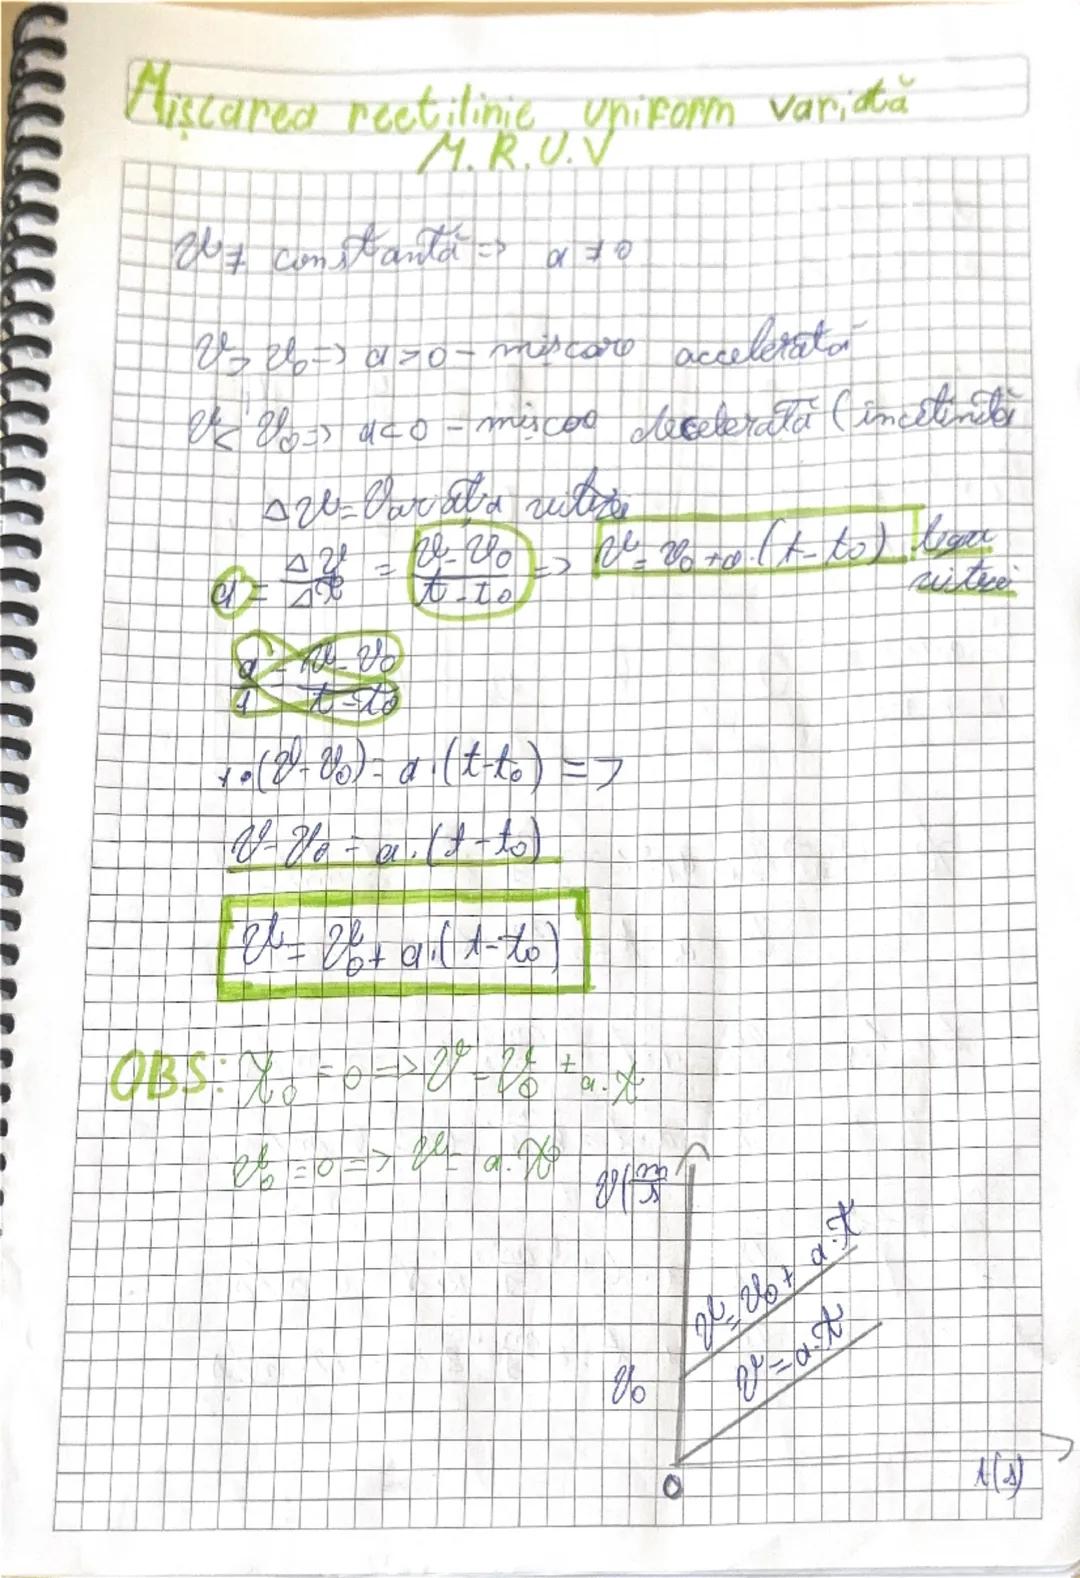 Mișcarea rectilinie uniform variată
M.R.U.V
v ≠ constantă => a ≠ 0
v > v₀ => a > 0 - mișcare accelerată
v < v₀ => a < 0 - mișcare decelerată (încetinită
Δv = Variația vitezei
a = Δv/Δt = (v - v₀)/(t - t₀) => v = v₀ + a·(t - t₀) legea vitezei
a/1 = (v - v₀)/(t - t₀)
1·(v - v₀) = a·(t - t₀) =>
v - v₀ = a·(t - t₀)
v = v₀ + a·(t - t₀)
OBS: t₀ = 0 => v = v₀ + a·t
v₀ = 0 => v = a·t
v(m/s
v = v₀ + a·t
v = a·t
v₀
0
t(s)